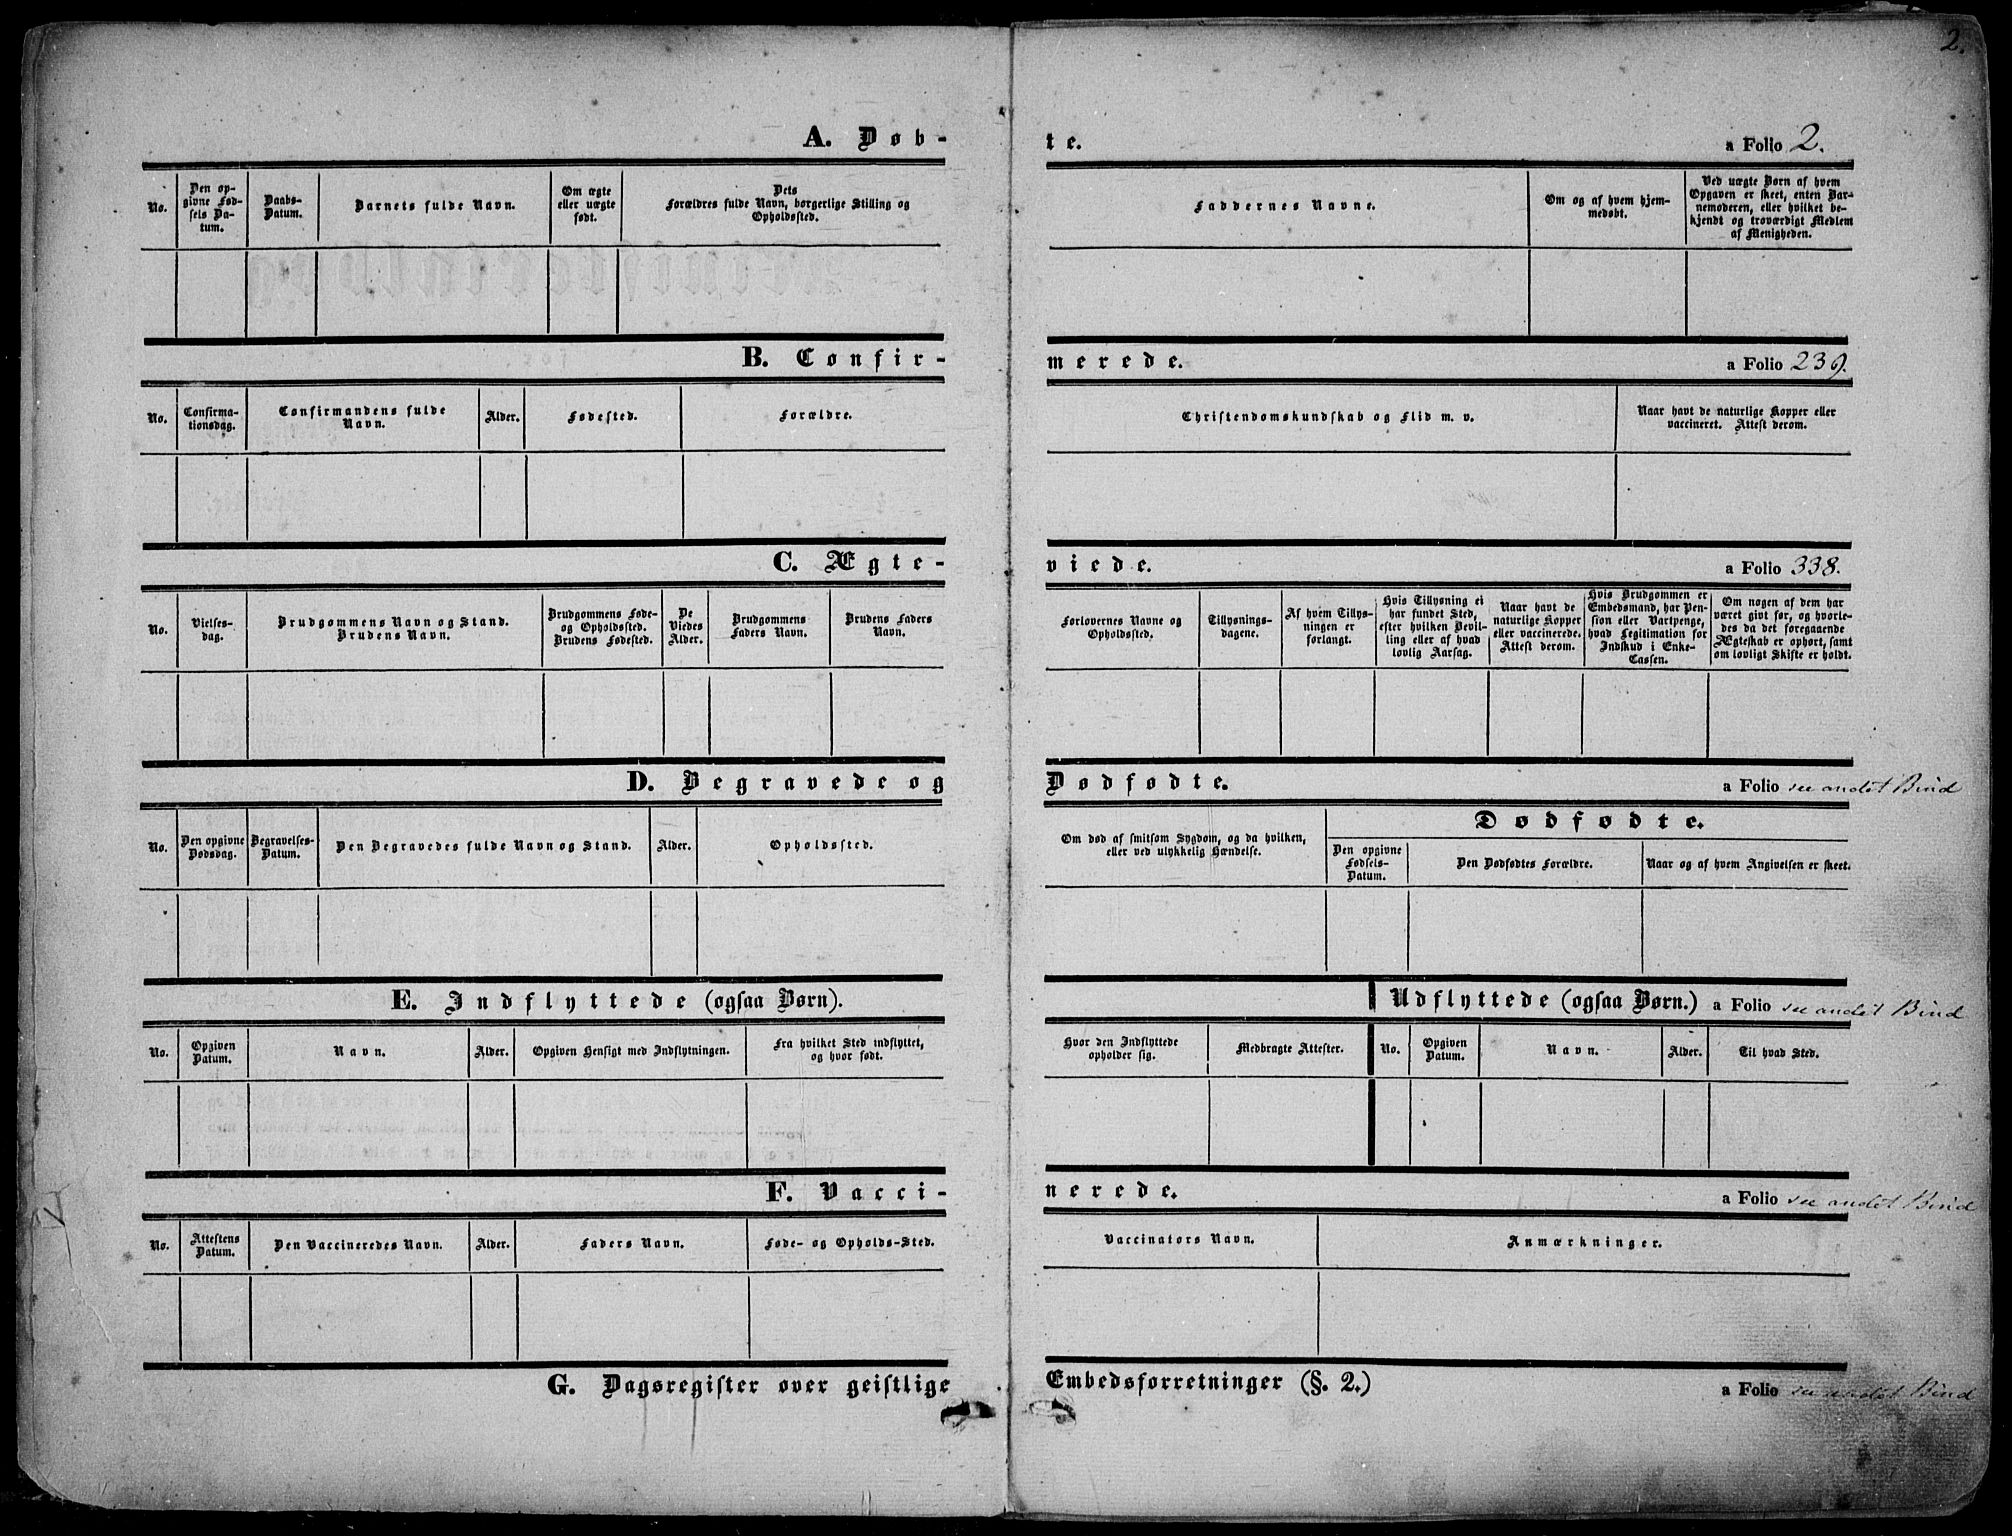 2.
A. Døb-
te.
a Folio 2.
No.
Den op-
givne Fød-
sels Da-
tum.
Daabs-
Datum.
Barnets fulde Navn.
Om ægte
eller uægte
født.
Dets
Forældres fulde Navn, borgerlige Stilling og
Opholdssted.
Faddernes Navne.
Om og af hvem hjem-
medøbt.
Ved uægte Børn af hvem
Opgaven er skeet, enten Bar-
nemoderen, eller hvilket be-
kjendt og troværdigt Medlem
af Menigheden.
B. Confir-
merede.
a Folio 239.
No.
Confirma-
tionsdag.
Confirmandens fulde
Navn.
Alder.
Fødested.
Forældre.
Christendomskundskab og Flid m. v.
Naar havt de naturlige Kopper eller
vaccineret. Attest derom.
C. Ægte-
viede.
a Folio 338.
No.
Vielses-
dag.
Brudgommens Navn og Stand.
Brudens Navn.
Brudgommens Føde-
og Opholdssted.
Brudens Fødested.
De
Viedes
Alder.
Brudgommens
Faders Navn.
Brudens Faders
Navn.
Forlovernes Navne og
Opholdssted.
Tillysnings-
dagene.
Af hvem Tillys-
ningen er
forlangt.
Hvis Tillysning ei
har fundet Sted,
efter hvilken Bevil-
ling eller af hvad
lovlig Aarsag.
Naar havt de
naturlige Kopper
eller vaccinerede.
Attest derom.
Hvis Brudgommen er
Embedsmand, har Pen-
sion eller Vartpenge,
hvad Legitimation for
Indskud i Enke-
Cassen.
Om nogen af dem har
været givt før, og hvorle-
des da det foregaaende
Ægteskab er ophørt, samt
om lovligt Skifte er holdt.
D. Begravede og
Dødfødte.
a Folio see andet Bind
No.
Den opgivne
Dødsdag.
Begravelses-
Datum.
Den Begravedes fulde Navn og Stand.
Alder.
Opholdssted.
Om død af smitsom Sygdom, og da hvilken,
eller ved ulykkelig Hændelse.
Dødfødte.
Den opgivne
Fødsels-
Datum.
Den Dødfødtes Forældre.
Naar og af hvem Angivelsen er skeet.
E. Indflyttede (ogsaa Børn).
Udflyttede (ogsaa Børn.) a Folio see andet Bind
No.
Opgiven
Datum.
Navn.
Alder.
Opgiven Hensigt med Indflytningen.
Fra hvilket Sted indflyttet,
og hvor født.
Hvor den Indflyttede
opholder sig.
Medbragte Attester.
No.
Opgiven
Datum.
Navn.
Alder.
Til hvad Sted.
F. Vacci-
nerede.
a Folio see andet Bind
No.
Attestens
Datum.
Den Vaccineredes Navn.
Alder.
Faders Navn.
Føde- og Opholds-Sted.
Vaccinators Navn.
Anmærkninger.
G. Dagsregister over geistlige
Embedsforretninger (§. 2.)
a Folio see andet Bind